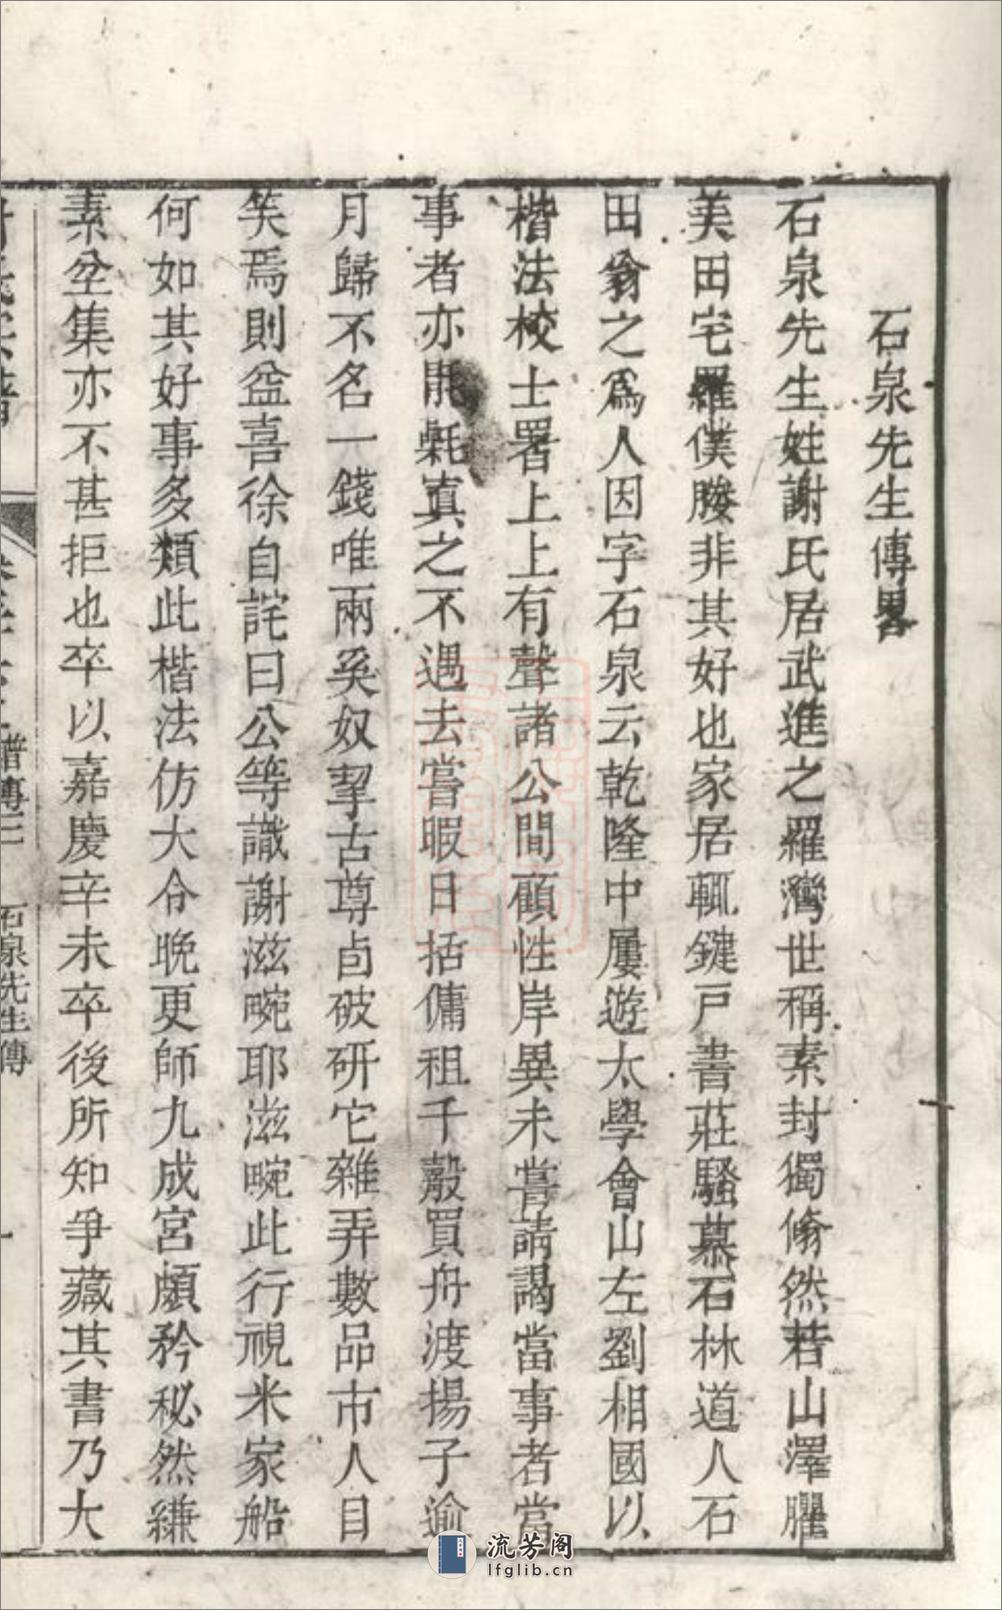 石泉先生傳畧
石泉先生姓謝氏居武進之羅灣世稱素封獨翛然若山澤臞
美田宅羅僕媵非其好也家居輒鍵戸書莊騷慕石林道人石
田翁之爲人因字石泉云乾隆中屢遊太學會山左劉相國以
楷法校士署上上有聲諸公間顧性岸異未嘗請謁當事者當
事者亦訿毷寘之不遇去嘗暇日括傭租千觳買舟渡揚子逾
月歸不名一錢唯兩奚奴挈古尊卣破研它雜弄數品市人目
笑焉則益喜徐自詫曰公等識謝滋畹耶滋畹此行視米家船
何如其好事多類此楷法仿大令晚更師九成宮頗矜秘然縑
素坌集亦不甚拒也卒以嘉慶辛未卒後所知爭藏其書乃大
譜傳三
石泉先生傳
一
流芳阁
lfglib.cn